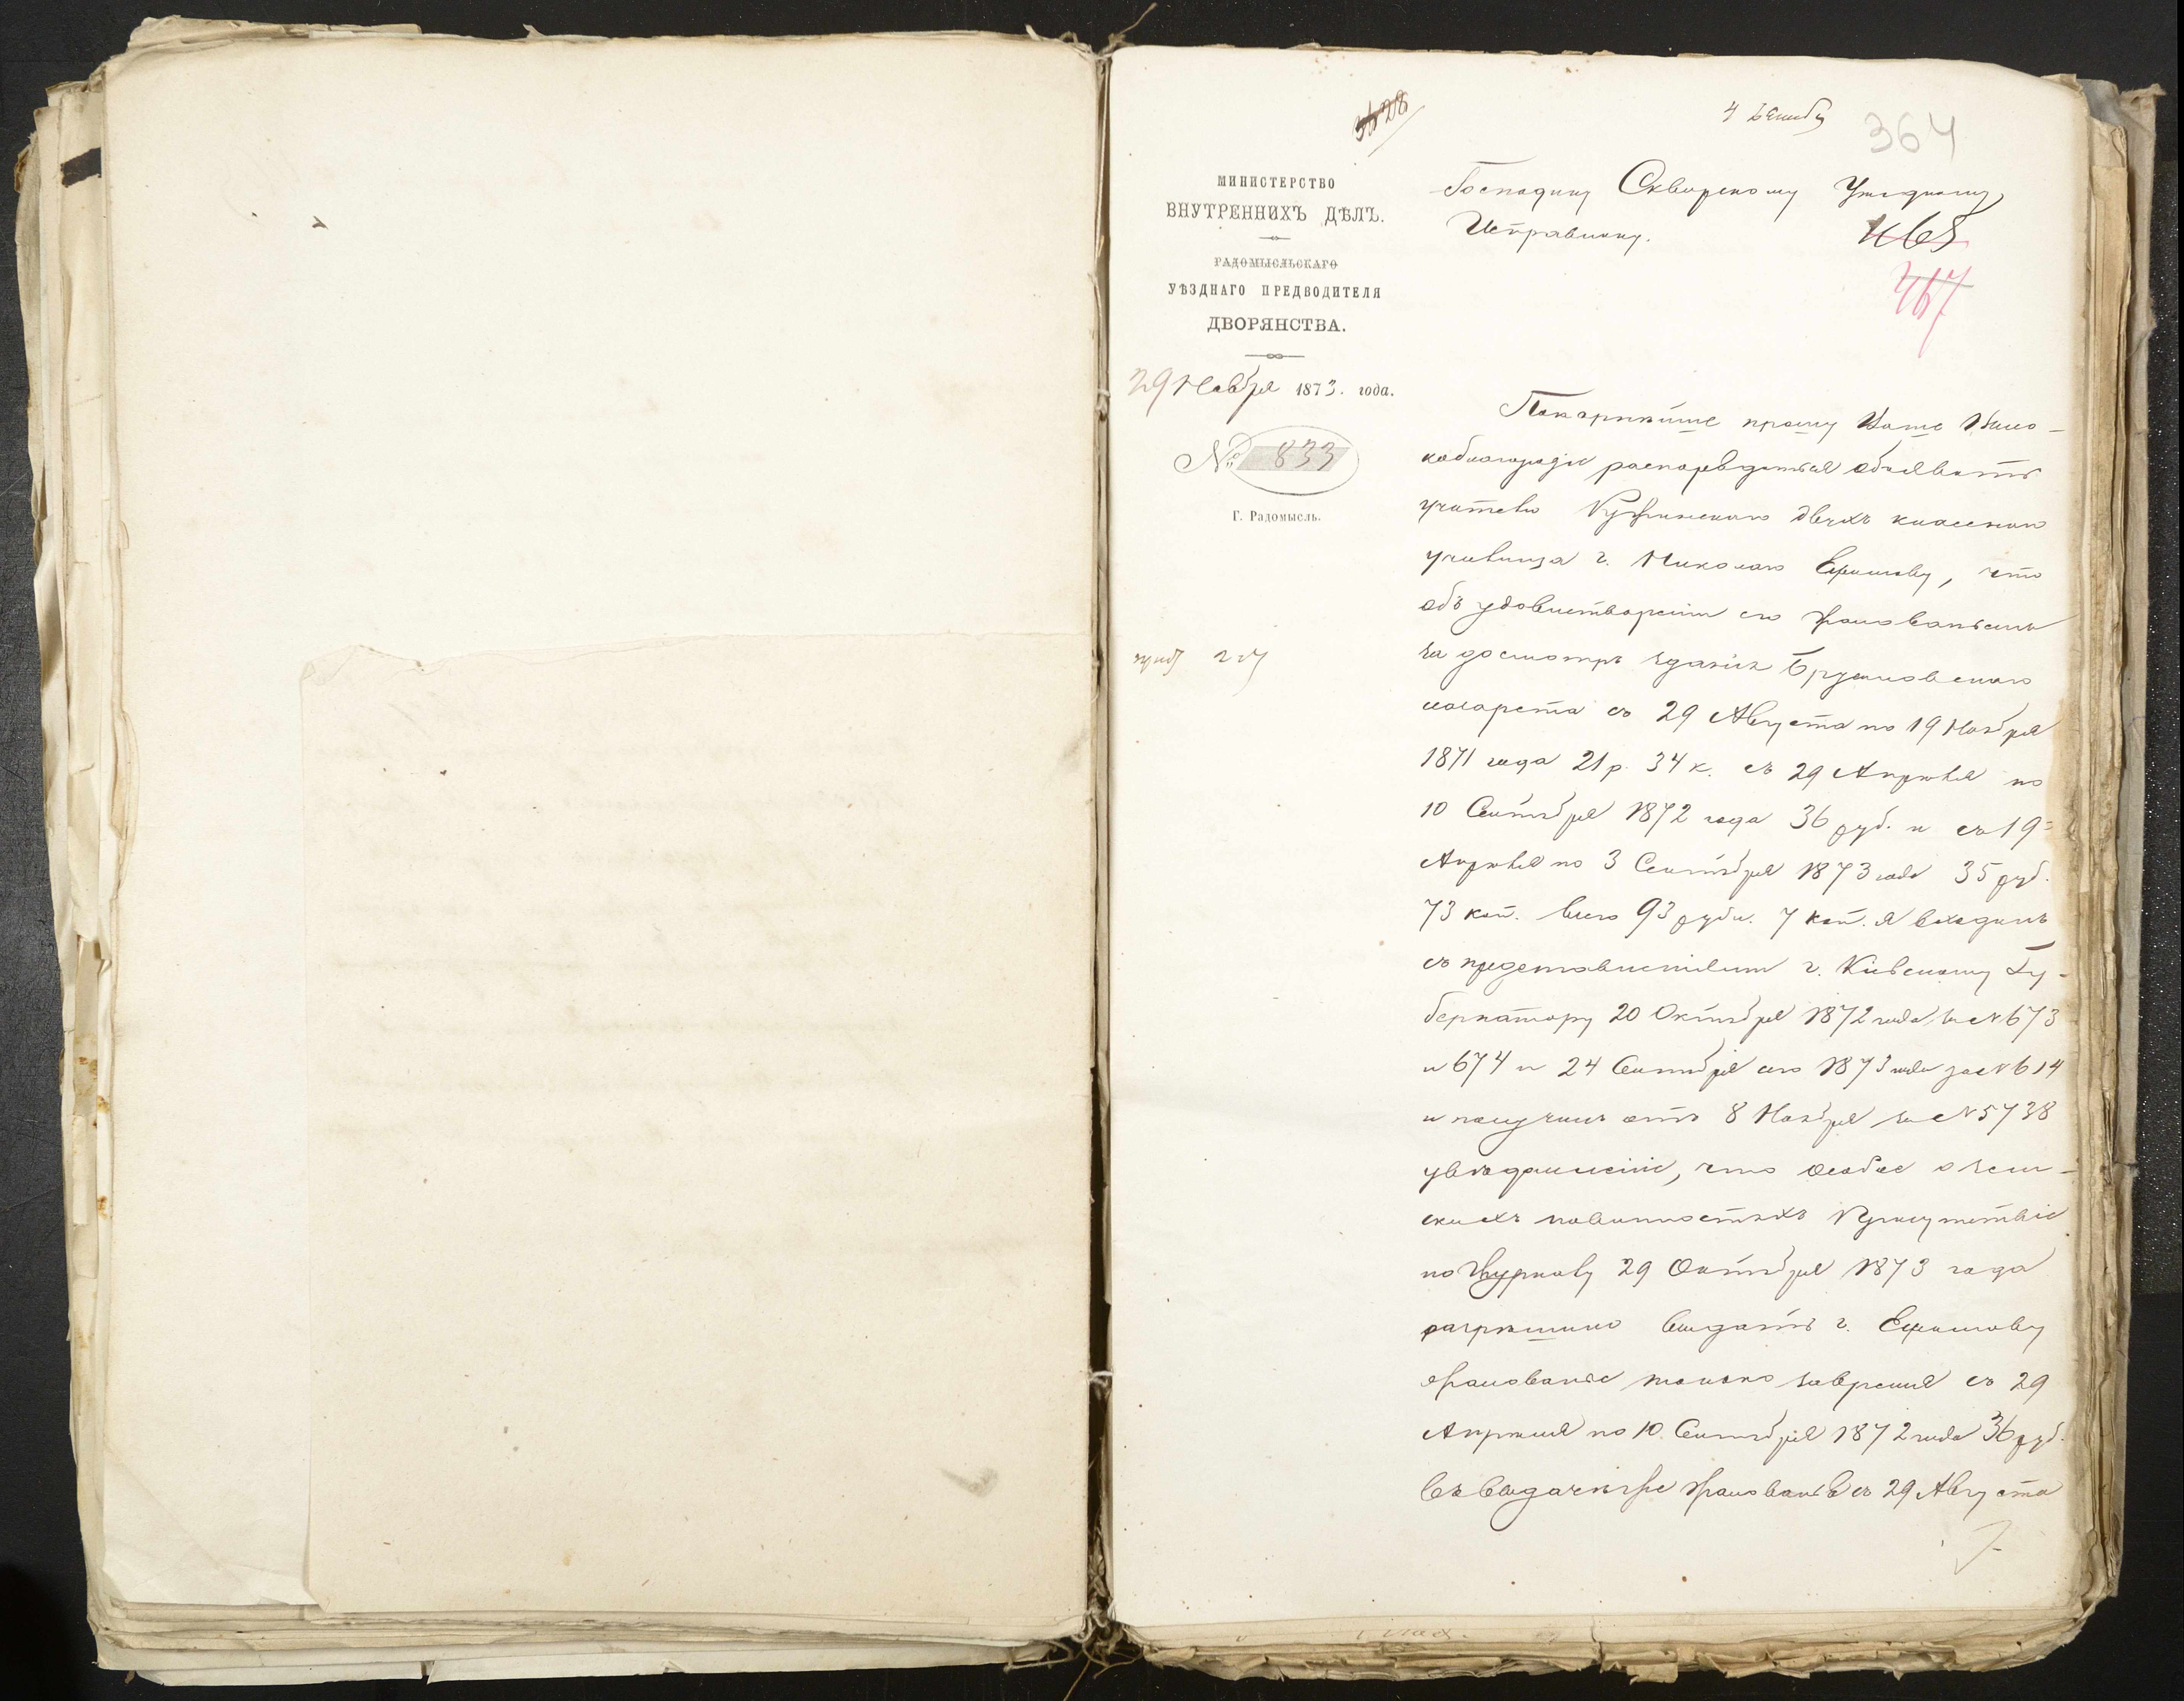 4 Декабр
364
МИНИСТЕРСТВО
ВНУТРЕННИХЪ ДѢЛЪ.
РАДОМЫСЛЬСКАГО
УѢЗДНАГО ПРЕДВОДИТЕЛЯ
ДВОРЯНСТВА.
29 Ноября 1873. года.
№ 833
Г. Радомысль.
Господину Сквирскому Уѣздному
Исправнику.
467
Покорнѣйше прошу Ваше Высо-
коблагородіе распорядиться объявить
учителю двухъ класснаго
училища г. Николаю Ефимову, что
объ удовлетвореніи его жалованьемъ
за досмотръ зданія Брусиловскаго
лазарета съ 29 Августа по 19 Ноября
1871 года 21 р. 34 к. съ 29 Апрѣля по
10 Сентября 1872 года 36 руб. и съ 19
Апрѣля по 3 Сентября 1873 года 35 руб.
73 коп. всего 93 рубл. 7 коп. я входилъ
съ представленіемъ г. Кіевскому Гу-
бернатору 20 Октября 1872 года за № 673
и 674 и 24 Сентября сего 1873 года за № 614
и получилъ отъ 8 Ноября за № 5738
увѣдомленіе, что особое о зем-
скихъ повинностяхъ Присутствіе
по журналу 29 Октября 1873 года
разрѣшило выдать г. Ефимову
жалованье только за время съ 29
Апрѣля по 10 Сентября 1872 года 36 руб.
въ выдачѣ же жалованья съ 29 Августа